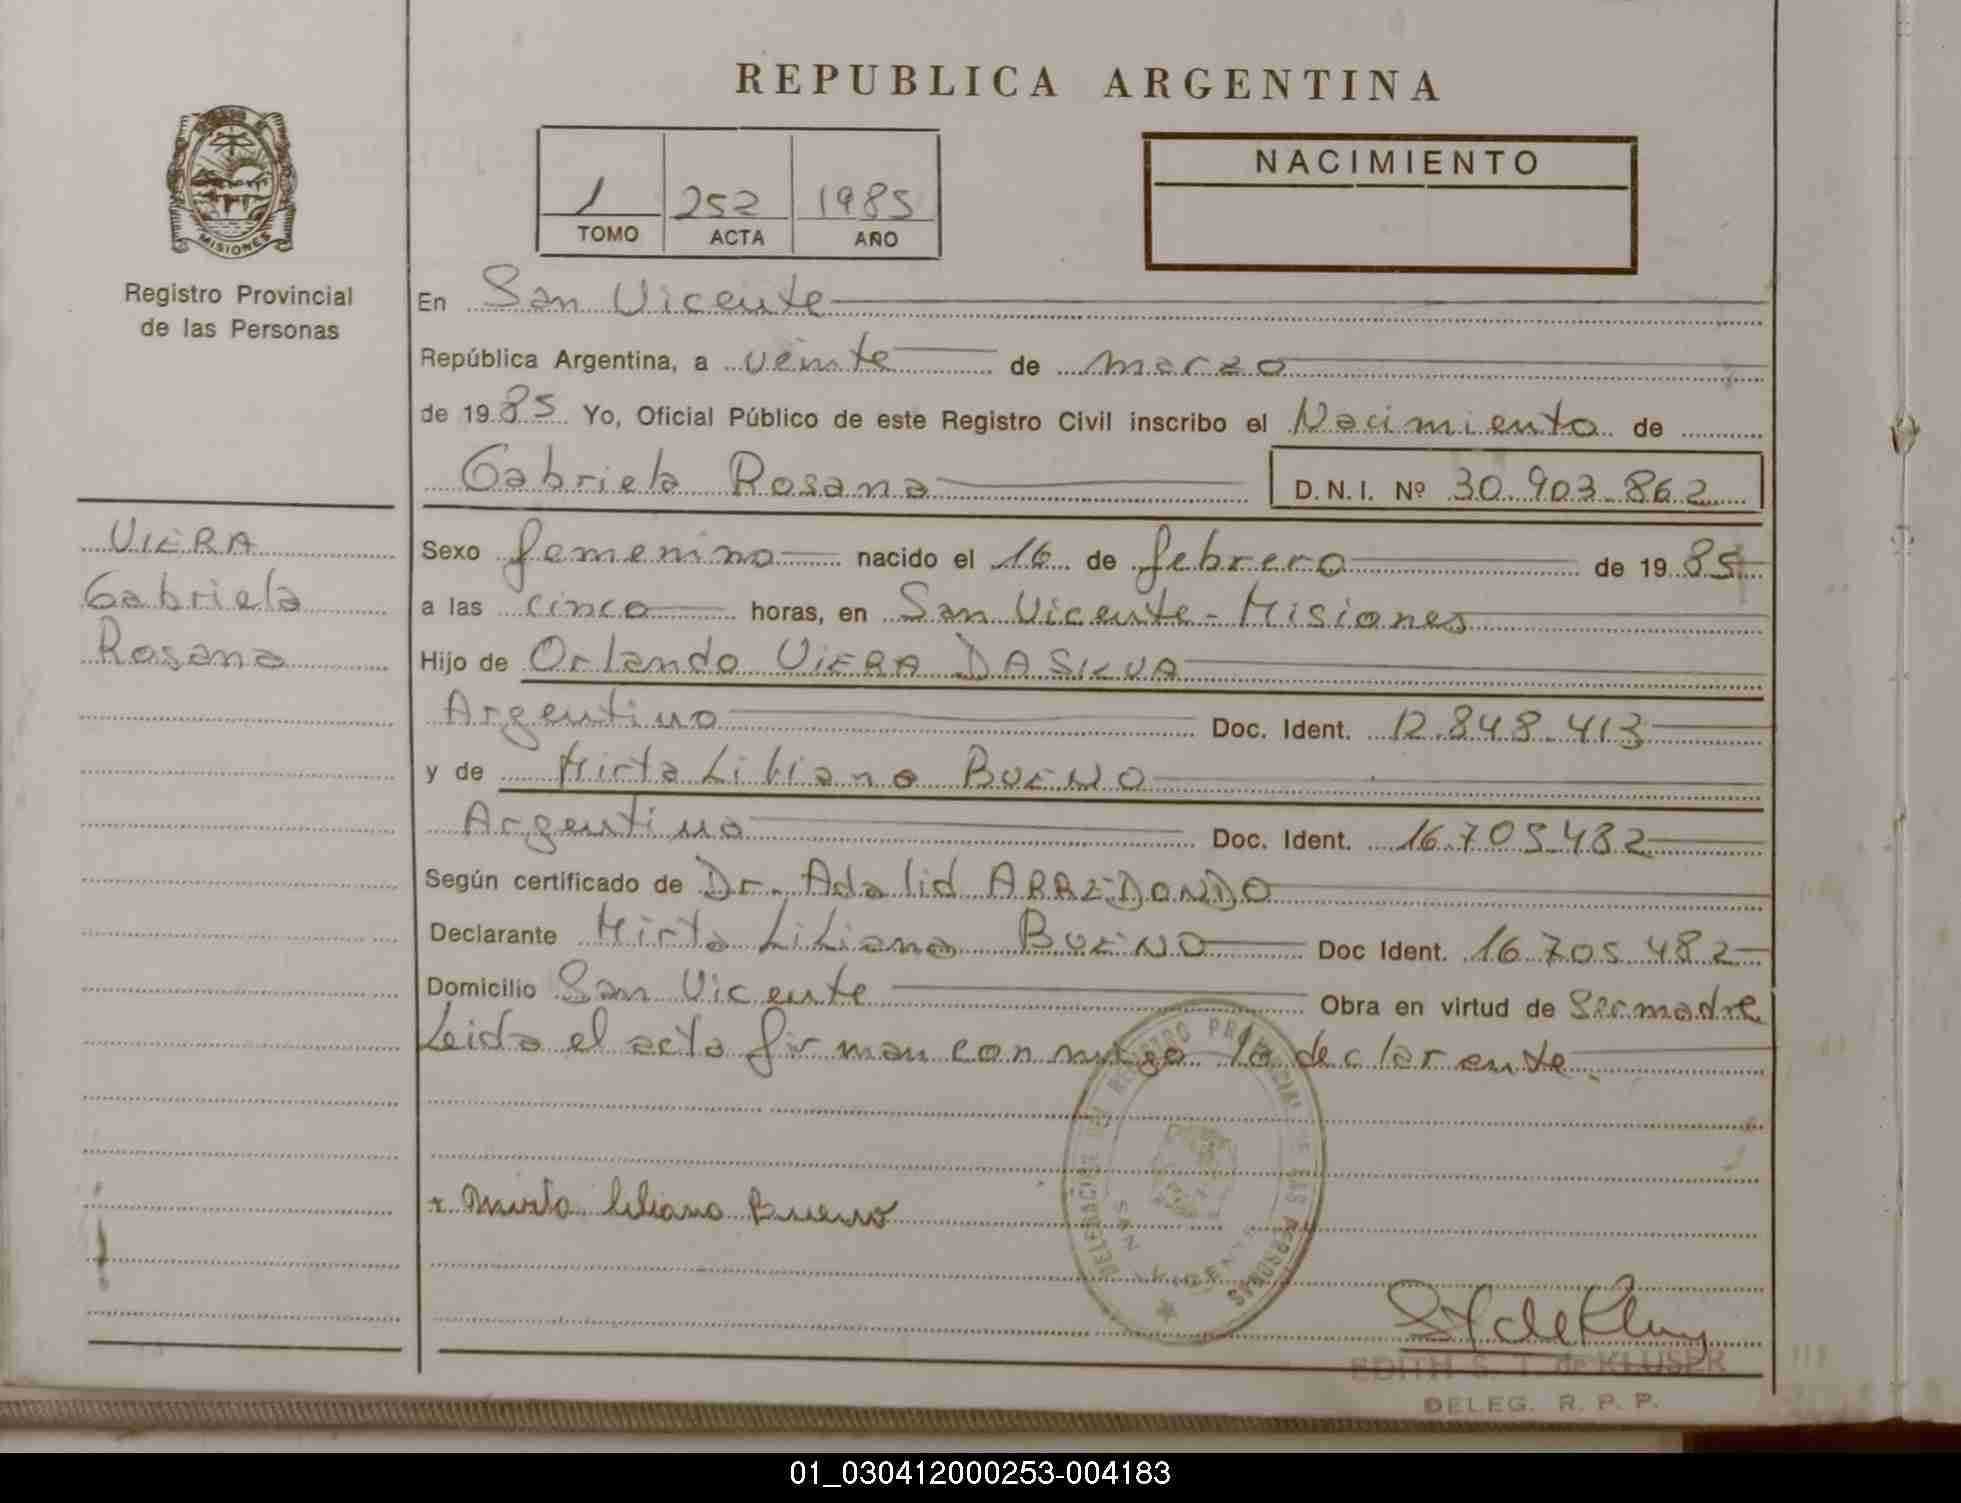 REPUBLICA ARGENTINA
MISIONES
Registro Provincial
de las Personas
1 252 1985
TOMO ACTA AÑO
NACIMIENTO
En San Vicente
República Argentina, a veinte de marzo
de 1985 Yo, Oficial Público de este Registro Civil inscribo el Nacimiento de
Gabriela Rosana D.N.I. Nº 30.903.862
VIERA
Gabriela
Rosana
Sexo femenino nacido el 16 de febrero de 1985
a las cinco horas, en San Vicente - Misiones
Hijo de Orlando VIERA DA SILVA
Argentino Doc. Ident. 12.848.413
y de Mirta Liliana BUENO
Argentina Doc. Ident. 16.705.482
Según certificado de Dr. Adalid ARREDONDO
Declarante Mirta Liliana BUENO Doc Ident. 16.705.482
Domicilio San Vicente Obra en virtud de Ser madre
Leida el acta firman conmigo la declarante.
DELEGACION DEL REGISTRO PROVINCIAL DE LAS PERSONAS
SAN VICENTE
x Mirta Liliana Bueno
EDITH S. T. de KLUSER
DELEG. R. P. P.
01_030412000253-004183